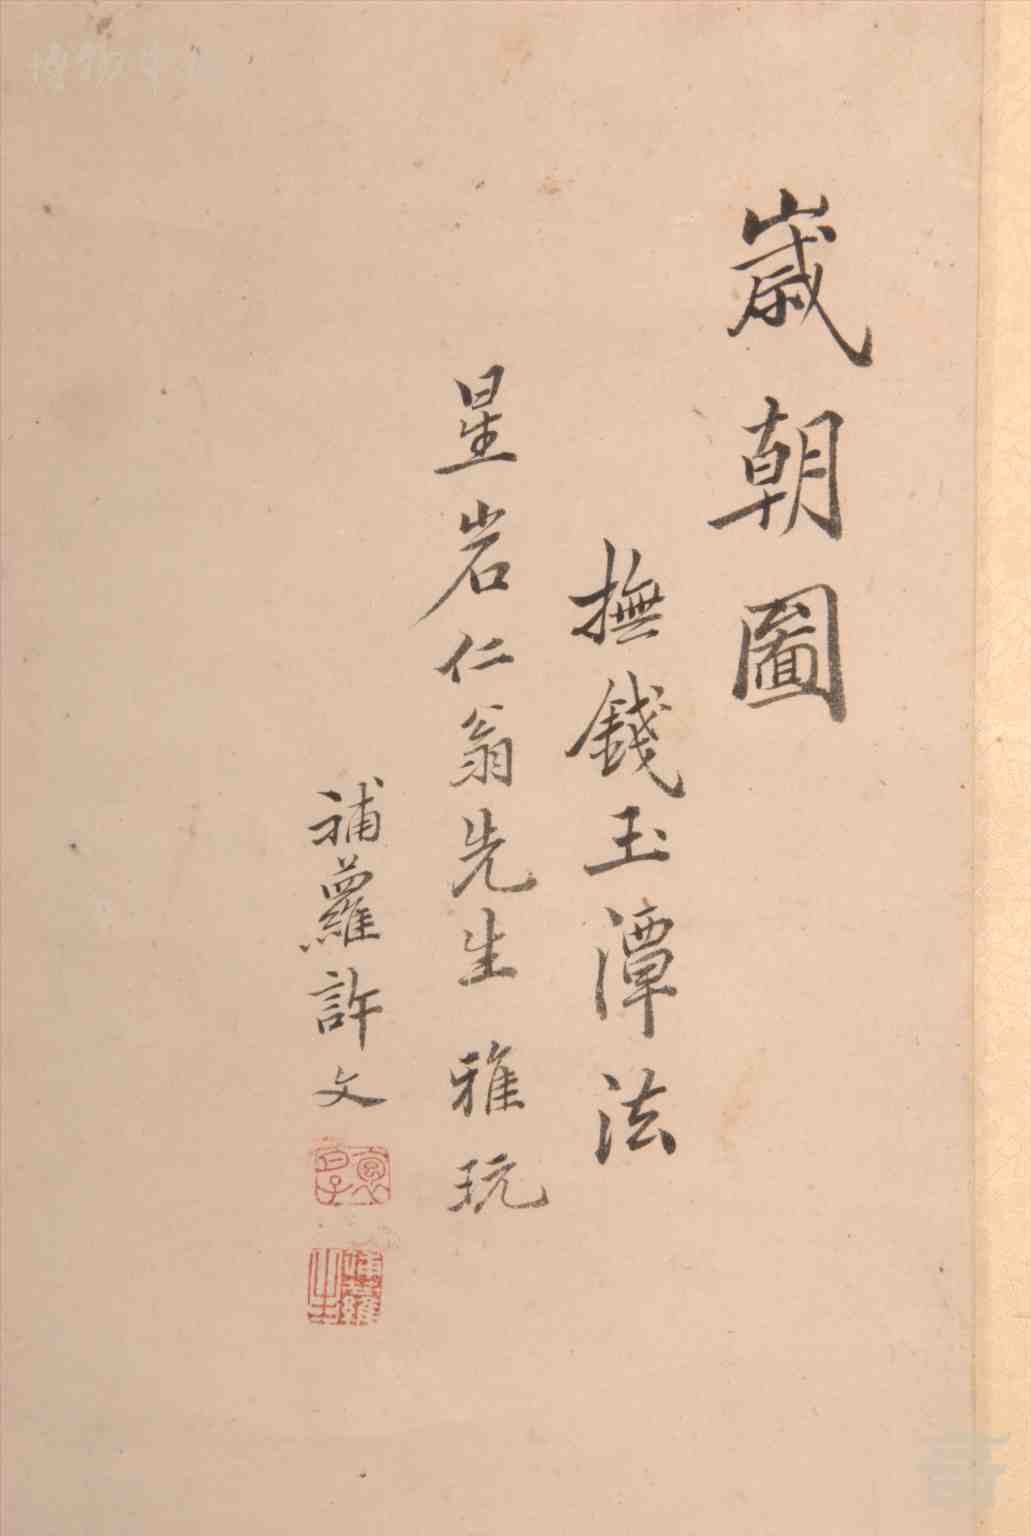 歲朝圖
撫錢玉潭法
星岩仁翁先生雅玩
補蘿許文